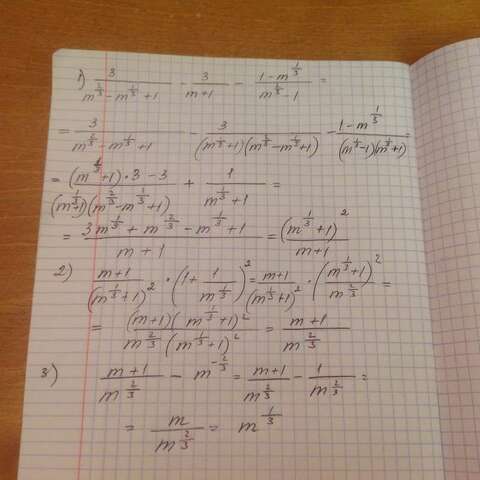 1) 3/(m^(2/3) - m^(1/3) + 1) - 3/(m+1) - (1 - m^(1/3))/(m^(2/3) - 1) =
= 3/(m^(2/3) - m^(1/3) + 1) - 3/((m^(1/3)+1)(m^(2/3) - m^(1/3) + 1)) - (1 - m^(1/3))/((m^(1/3)-1)(m^(1/3)+1)) =
= ((m^(1/3)+1)·3 - 3)/((m^(1/3)+1)(m^(2/3) - m^(1/3) + 1)) + 1/(m^(1/3)+1) =
= (3m^(1/3) + m^(2/3) - m^(1/3) + 1)/(m+1) = (m^(1/3)+1)^2/(m+1)
2) (m+1)/(m^(1/3)+1)^2 · (1 + 1/m^(1/3))^2 = (m+1)/(m^(1/3)+1)^2 · (m^(1/3)+1)^2/m^(2/3) =
= (m+1)(m^(1/3)+1)^2/(m^(2/3)(m^(1/3)+1)^2) = (m+1)/m^(2/3)
3) (m+1)/m^(2/3) - m^(-2/3) = (m+1)/m^(2/3) - 1/m^(2/3) =
= m/m^(2/3) = m^(1/3)